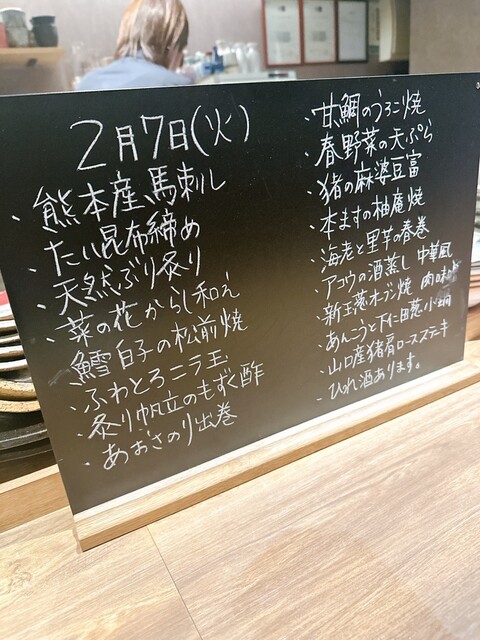 2月7日(火)
・熊本産馬刺し
・たい昆布締め
・天然ぶり炙り
・菜の花からし和え
・鱈白子の松前焼
・ふわとろニラ玉
・炙り帆立のもずく酢
・あおさのり出巻
・甘鯛のうろこ焼
・春野菜の天ぷら
・猪の麻婆豆富
・本ますの柚庵焼
・海老と里芋の春巻
・アコウの酒蒸し 中華風
・新玉葱オーブン焼 肉味噌
・あんこうと下仁田葱小鍋
・山口産猪肩ロースステーキ
・ひれ酒あります。